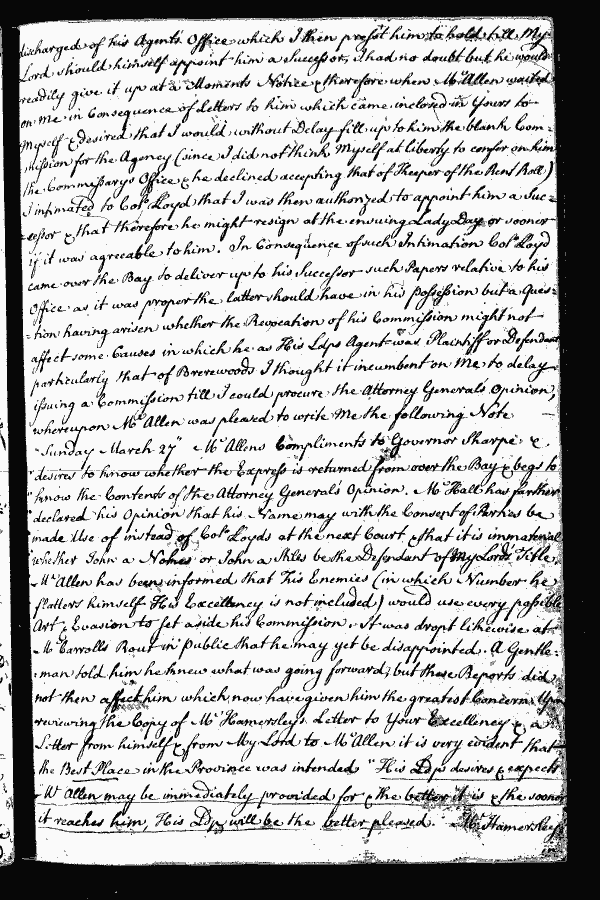 discharged of his Agents Office which I then prest him to hold till My
Lord should himself appoint him a Successor, I had no doubt but he would
readily give it up at a Moments Notice & therefore when Mr Allen waited
on me in Consequence of Letters to him which came inclosed in Yours to
Myself & desired that I would without Delay fill up to him the blank Com=
mission for the Agency (since I did not think Myself at liberty to confer on him
the Commissarys Office & he declined accepting that of Keeper of the Rent Roll)
I intimated to Colo Lloyd that I was then authorized to appoint him a Suc=
=cessor & that therefore he might resign at the ensuing Lady Day or sooner
if it was agreeable to him. In Consequence of such Intimation Colo Lloyd
came over the Bay to deliver up to his Successor such Papers relative to his
Office as it was proper the latter should have in his possession but a Ques=
=tion having arisen whether the Revocation of his Commission might not
affect some Causes in which he as His Ldps Agent was Plaintiff or Defendant
particularly that of Brerewoods I thought it incumbent on Me to delay
issuing a Commission till I could procure the Attorney General's Opinion,
whereupon Mr Allen was pleased to write Me the following Note
"Sunday March 27" Mr Allens Compliments to Governor Sharpe &
desires to know whether the Express is returned from over the Bay & begs to
know the Contents of the Attorney General's Opinion. Mr Hall has further
declared his Opinion that his Name may with the Consent of Parties be
made Use of instead of Colo Lloyds at the next Court & that it is immaterial
whether John a Nokes or John a Stiles be the Defendant of My Lord's Title.
Mr Allen has been informed that His Enemies (in which Number he
flatters himself His Excellency is not included) would use every possible
Art & Evasion to set aside his Commission. It was dropt likewise at
Mr Carrolls Rout in Publick that he may yet be disappointed. A Gentle=
=man told him he knew what was going forward; but these Reports did
not then affect him which now have given him the greatest Concern. Upon
reviewing the Copy of Mr Hamersley's Letter to Your Excellency & a
Letter from himself & from My Lord to Mr Allen it is very evident that
the Best Place in the Province was intended "His Ldps desires & expects
Mr Allen may be immediately provided for & the better it is & the sooner
it reaches him, His Ldp will be the better pleased. Mr Hamersleys